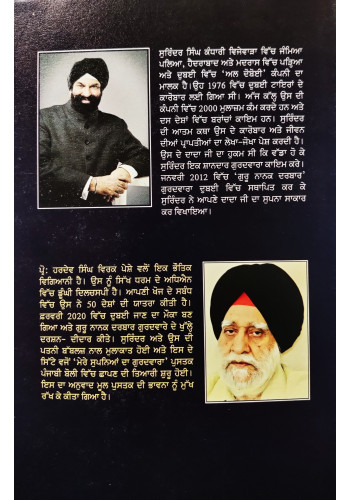 ਸੁਰਿੰਦਰ ਸਿੰਘ ਕੰਧਾਰੀ ਵਿਜੇਵਾੜਾ ਵਿੱਚ ਜੰਮਿਆ
ਪਲਿਆ, ਹੈਦਰਾਬਾਦ ਅਤੇ ਮਦਰਾਸ ਵਿੱਚ ਪੜ੍ਹਿਆ
ਅਤੇ ਦੁਬਈ ਵਿੱਚ 'ਅਲ ਦੋਬੋਈ' ਕੰਪਨੀ ਦਾ
ਮਾਲਕ ਹੈ। ਉਹ 1976 ਵਿੱਚ ਦੁਬਈ ਟਾਇਰਾਂ ਦੇ
ਕਾਰੋਬਾਰ ਲਈ ਗਿਆ ਸੀ। ਅੱਜ ਕੱਲ੍ਹ ਉਸ ਦੀ
ਕੰਪਨੀ ਵਿੱਚ 2000 ਮੁਲਾਜ਼ਮ ਕੰਮ ਕਰਦੇ ਹਨ ਅਤੇ
ਦਸ ਦੇਸ਼ਾਂ ਵਿੱਚ ਬਰਾਂਚਾਂ ਕਾਇਮ ਹਨ। ਸੁਰਿੰਦਰ
ਦੀ ਆਤਮ ਕਥਾ ਉਸ ਦੇ ਕਾਰੋਬਾਰ ਅਤੇ ਜੀਵਨ
ਦੀਆਂ ਪ੍ਰਾਪਤੀਆਂ ਦਾ ਲੇਖਾ-ਜੋਖਾ ਪੇਸ਼ ਕਰਦੀ ਹੈ।
ਉਸ ਦੇ ਦਾਦਾ ਜੀ ਦਾ ਹੁਕਮ ਸੀ ਕਿ ਵੱਡਾ ਹੋ ਕੇ
ਸੁਰਿੰਦਰ ਇਕ ਸ਼ਾਨਦਾਰ ਗੁਰਦਵਾਰਾ ਕਾਇਮ ਕਰੇ।
ਜਨਵਰੀ 2012 ਵਿੱਚ 'ਗੁਰੂ ਨਾਨਕ ਦਰਬਾਰ'
ਗੁਰਦਵਾਰਾ ਦੁਬਈ ਵਿੱਚ ਸਥਾਪਿਤ ਕਰ ਕੇ
ਸੁਰਿੰਦਰ ਨੇ ਆਪਣੇ ਦਾਦਾ ਜੀ ਦਾ ਸੁਪਨਾ ਸਾਕਾਰ
ਕਰ ਵਿਖਾਇਆ।
ਪ੍ਰੋ: ਹਰਦੇਵ ਸਿੰਘ ਵਿਰਕ ਪੇਸ਼ੇ ਵਲੋਂ ਇਕ ਭੌਤਿਕ
ਵਿਗਿਆਨੀ ਹੈ। ਉਸ ਨੂੰ ਸਿੱਖ ਧਰਮ ਦੇ ਅਧਿਐਨ
ਵਿੱਚ ਡੂੰਘੀ ਦਿਲਚਸਪੀ ਹੈ। ਆਪਣੀ ਖੋਜ ਦੇ ਸਬੰਧ
ਵਿੱਚ ਉਸ ਨੇ 50 ਦੇਸ਼ਾਂ ਦੀ ਯਾਤਰਾ ਕੀਤੀ ਹੈ।
ਫ਼ਰਵਰੀ 2020 ਵਿੱਚ ਦੁਬਈ ਜਾਣ ਦਾ ਮੌਕਾ ਬਣ
ਗਿਆ ਅਤੇ ਗੁਰੂ ਨਾਨਕ ਦਰਬਾਰ ਗੁਰਦਵਾਰੇ ਦੇ ਖੁੱਲ੍ਹੇ
ਦਰਸ਼ਨ- ਦੀਦਾਰ ਕੀਤੇ। ਸੁਰਿੰਦਰ ਅਤੇ ਉਸ ਦੀ
ਪਤਨੀ ਬੱਬਲਜ਼ ਨਾਲ ਮੁਲਾਕਾਤ ਹੋਈ ਅਤੇ ਇਸ ਦੇ
ਸਿੱਟੇ ਵਜੋਂ 'ਮੇਰੇ ਸੁਪਨਿਆਂ ਦਾ ਗੁਰਦਵਾਰਾ' ਪੁਸਤਕ
ਪੰਜਾਬੀ ਬੋਲੀ ਵਿੱਚ ਛਾਪਣ ਦੀ ਤਿਆਰੀ ਸ਼ੁਰੂ ਹੋਈ।
ਇਸ ਦਾ ਅਨੁਵਾਦ ਮੂਲ ਪੁਸਤਕ ਦੀ ਭਾਵਨਾ ਨੂੰ ਮੁੱਖ
ਰੱਖ ਕੇ ਕੀਤਾ ਗਿਆ ਹੈ।